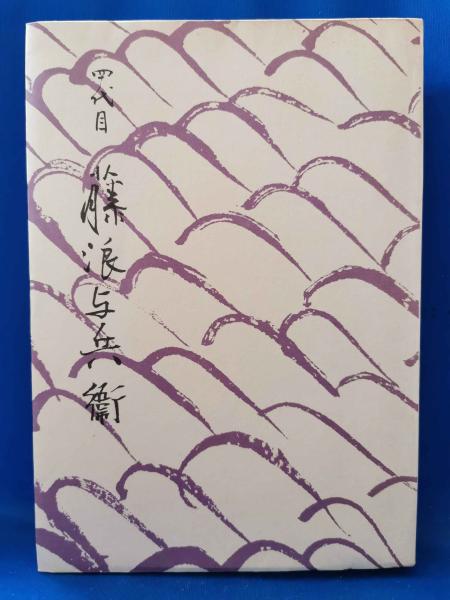 四代目 藤浪与兵衞